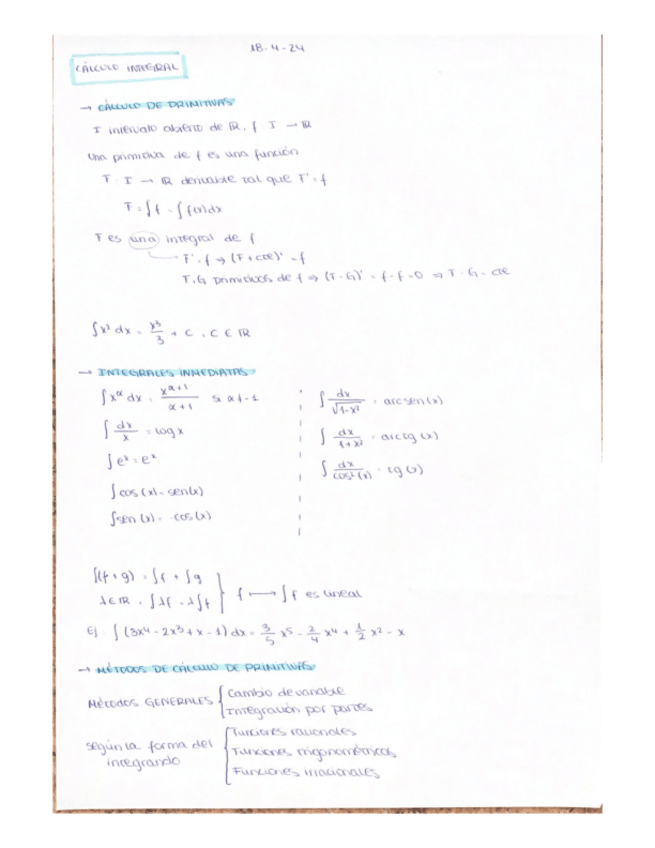 18-4-24
CÁLCULO INTEGRAL
→ CÁLCULO DE PRIMITIVAS
I intervalo abierto de ℝ, f: I → ℝ
Una primitiva de f es una función
F: I → ℝ derivable tal que F' = f
F = ∫f = ∫f(x)dx
F es una integral de f
F' = f ⇒ (F + cte)' = f
F, G primitivas de f ⇒ (F - G)' = f - f = 0 ⇒ F - G = cte
∫x² dx = x³/3 + C, C ∈ ℝ
→ INTEGRALES INMEDIATAS
∫x^α dx = x^(α+1)/(α+1) si α ≠ -1
∫dx/x = log x
∫e^x = e^x
∫cos(x) = sen(x)
∫sen(x) = -cos(x)
∫dx/√(1-x²) = arcsen(x)
∫dx/(1+x²) = arctg(x)
∫dx/cos²(x) = tg(x)
∫(f+g) = ∫f + ∫g
λ ∈ ℝ, ∫λf = λ∫f } f ⟼ ∫f es lineal
Ej: ∫(3x⁴ - 2x³ + x - 1) dx = 3/5 x⁵ - 2/4 x⁴ + 1/2 x² - x
→ MÉTODOS DE CÁLCULO DE PRIMITIVAS
MÉTODOS GENERALES { Cambio de variable
Integración por partes
según la forma del integrando { Funciones racionales
Funciones trigonométricas
Funciones irracionales